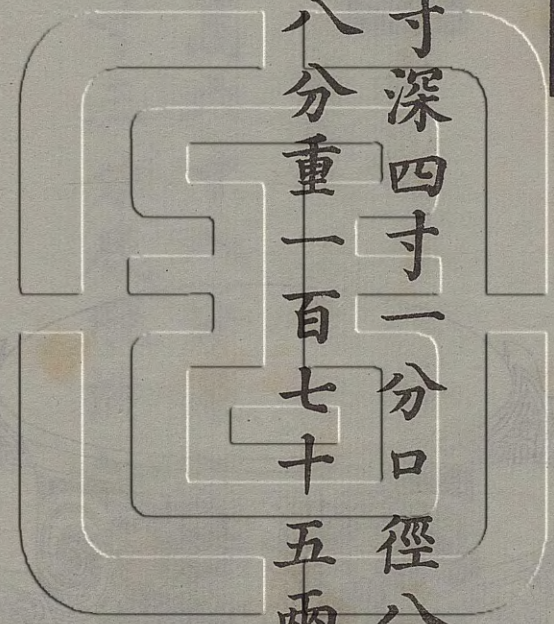 寸深四寸一分口徑八
八分重一百七十五兩